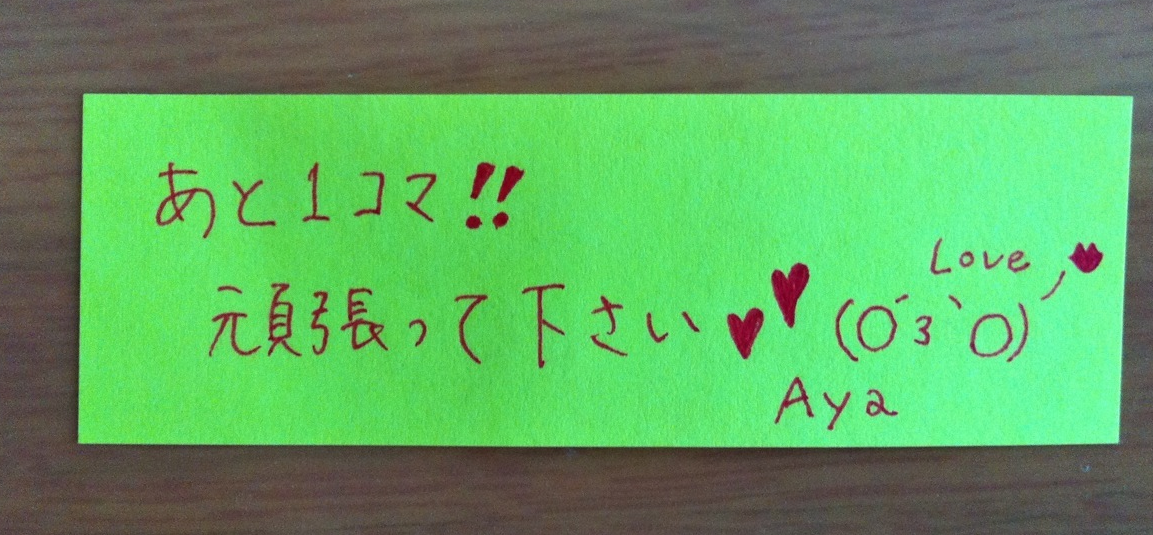 あと1コマ!!
頑張って下さい♥♥
Love
(O´3`O)
Aya